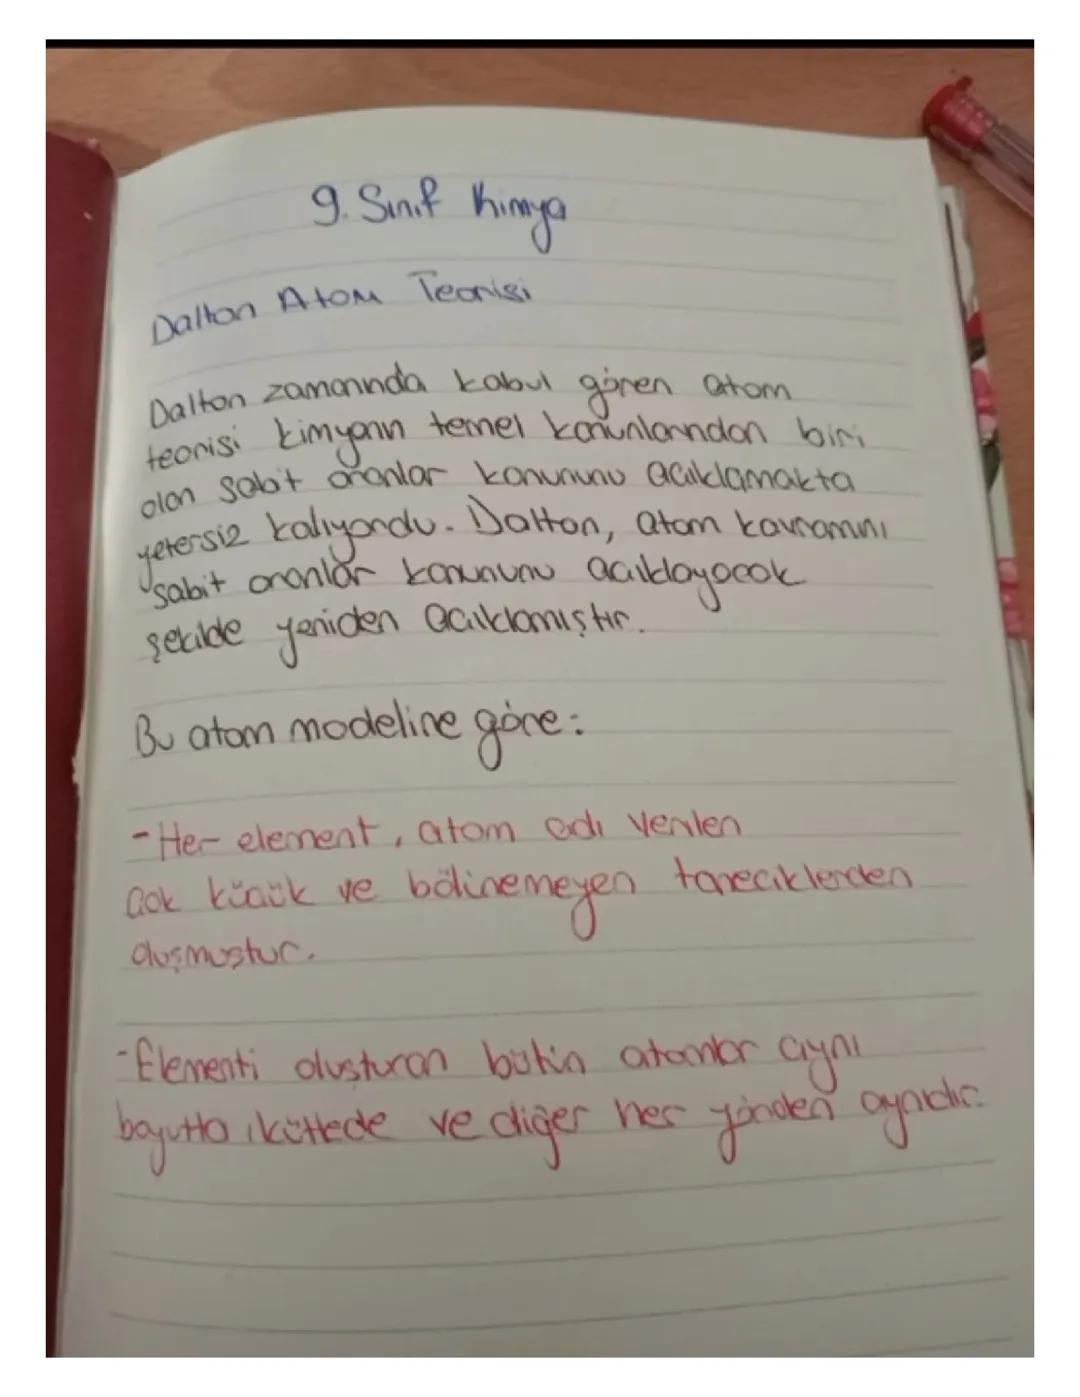 9. Sınıf Kimya
Dalton Atom Teorisi
Dalton zamanında kabul gören atom
teorisi kimyanın temel kanunlarından biri
olan sabit oranlar kanununu açıklamakta
yetersiz kalıyordu. Dalton, atom kavramını
sabit oranlar kanununu açıklayacak
şekilde yeniden açıklamıştır.
Bu atom modeline göre:
-Her element, atom adı verilen
çok küçük ve bölünemeyen taneciklerden
oluşmuştur.
-Elementi oluşturan bütün atomlar aynı
boyutta, kütlede ve diğer her yönden aynıdır.